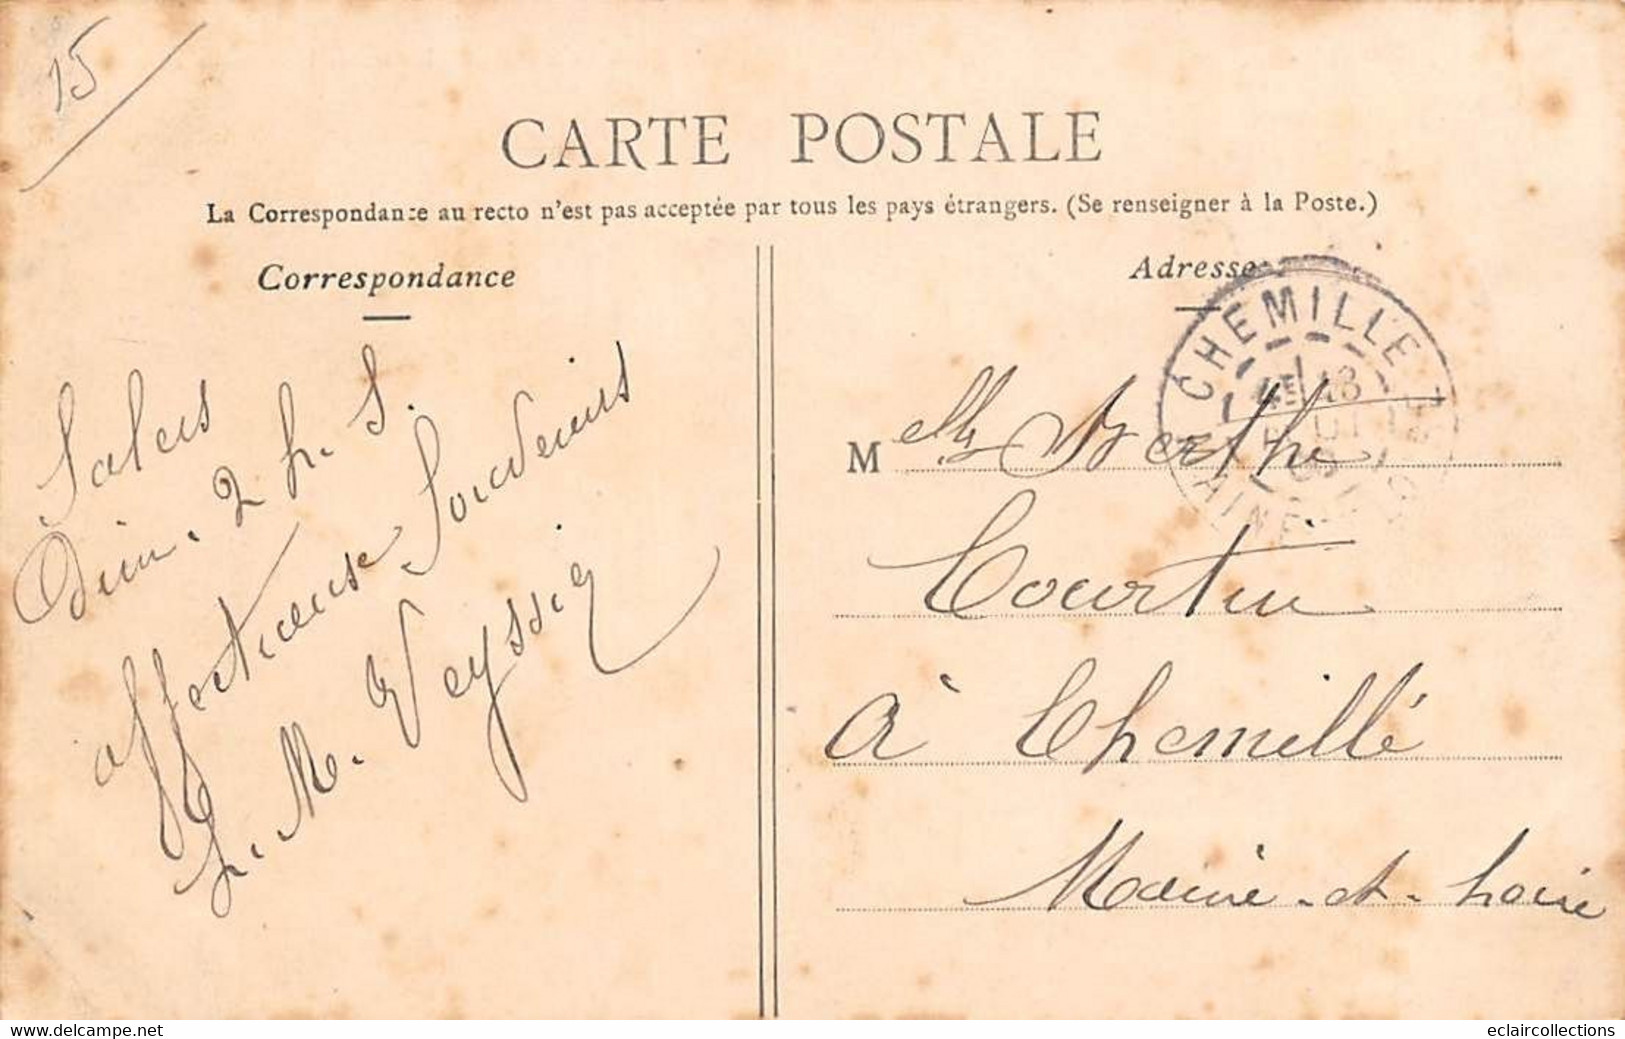 15
CARTE POSTALE
La Correspondance au recto n'est pas acceptée par tous les pays étrangers. (Se renseigner à la Poste.)
Correspondance
Adresse
CHEMILLE
18
Salers
Dim. 2 h. S.
affectueuse Souvenirs
L. M. Veyssig
M elle Berthe
Courtin
à Chemillé
Maine-et-Loire
www.delcampe.net
eclaircollections